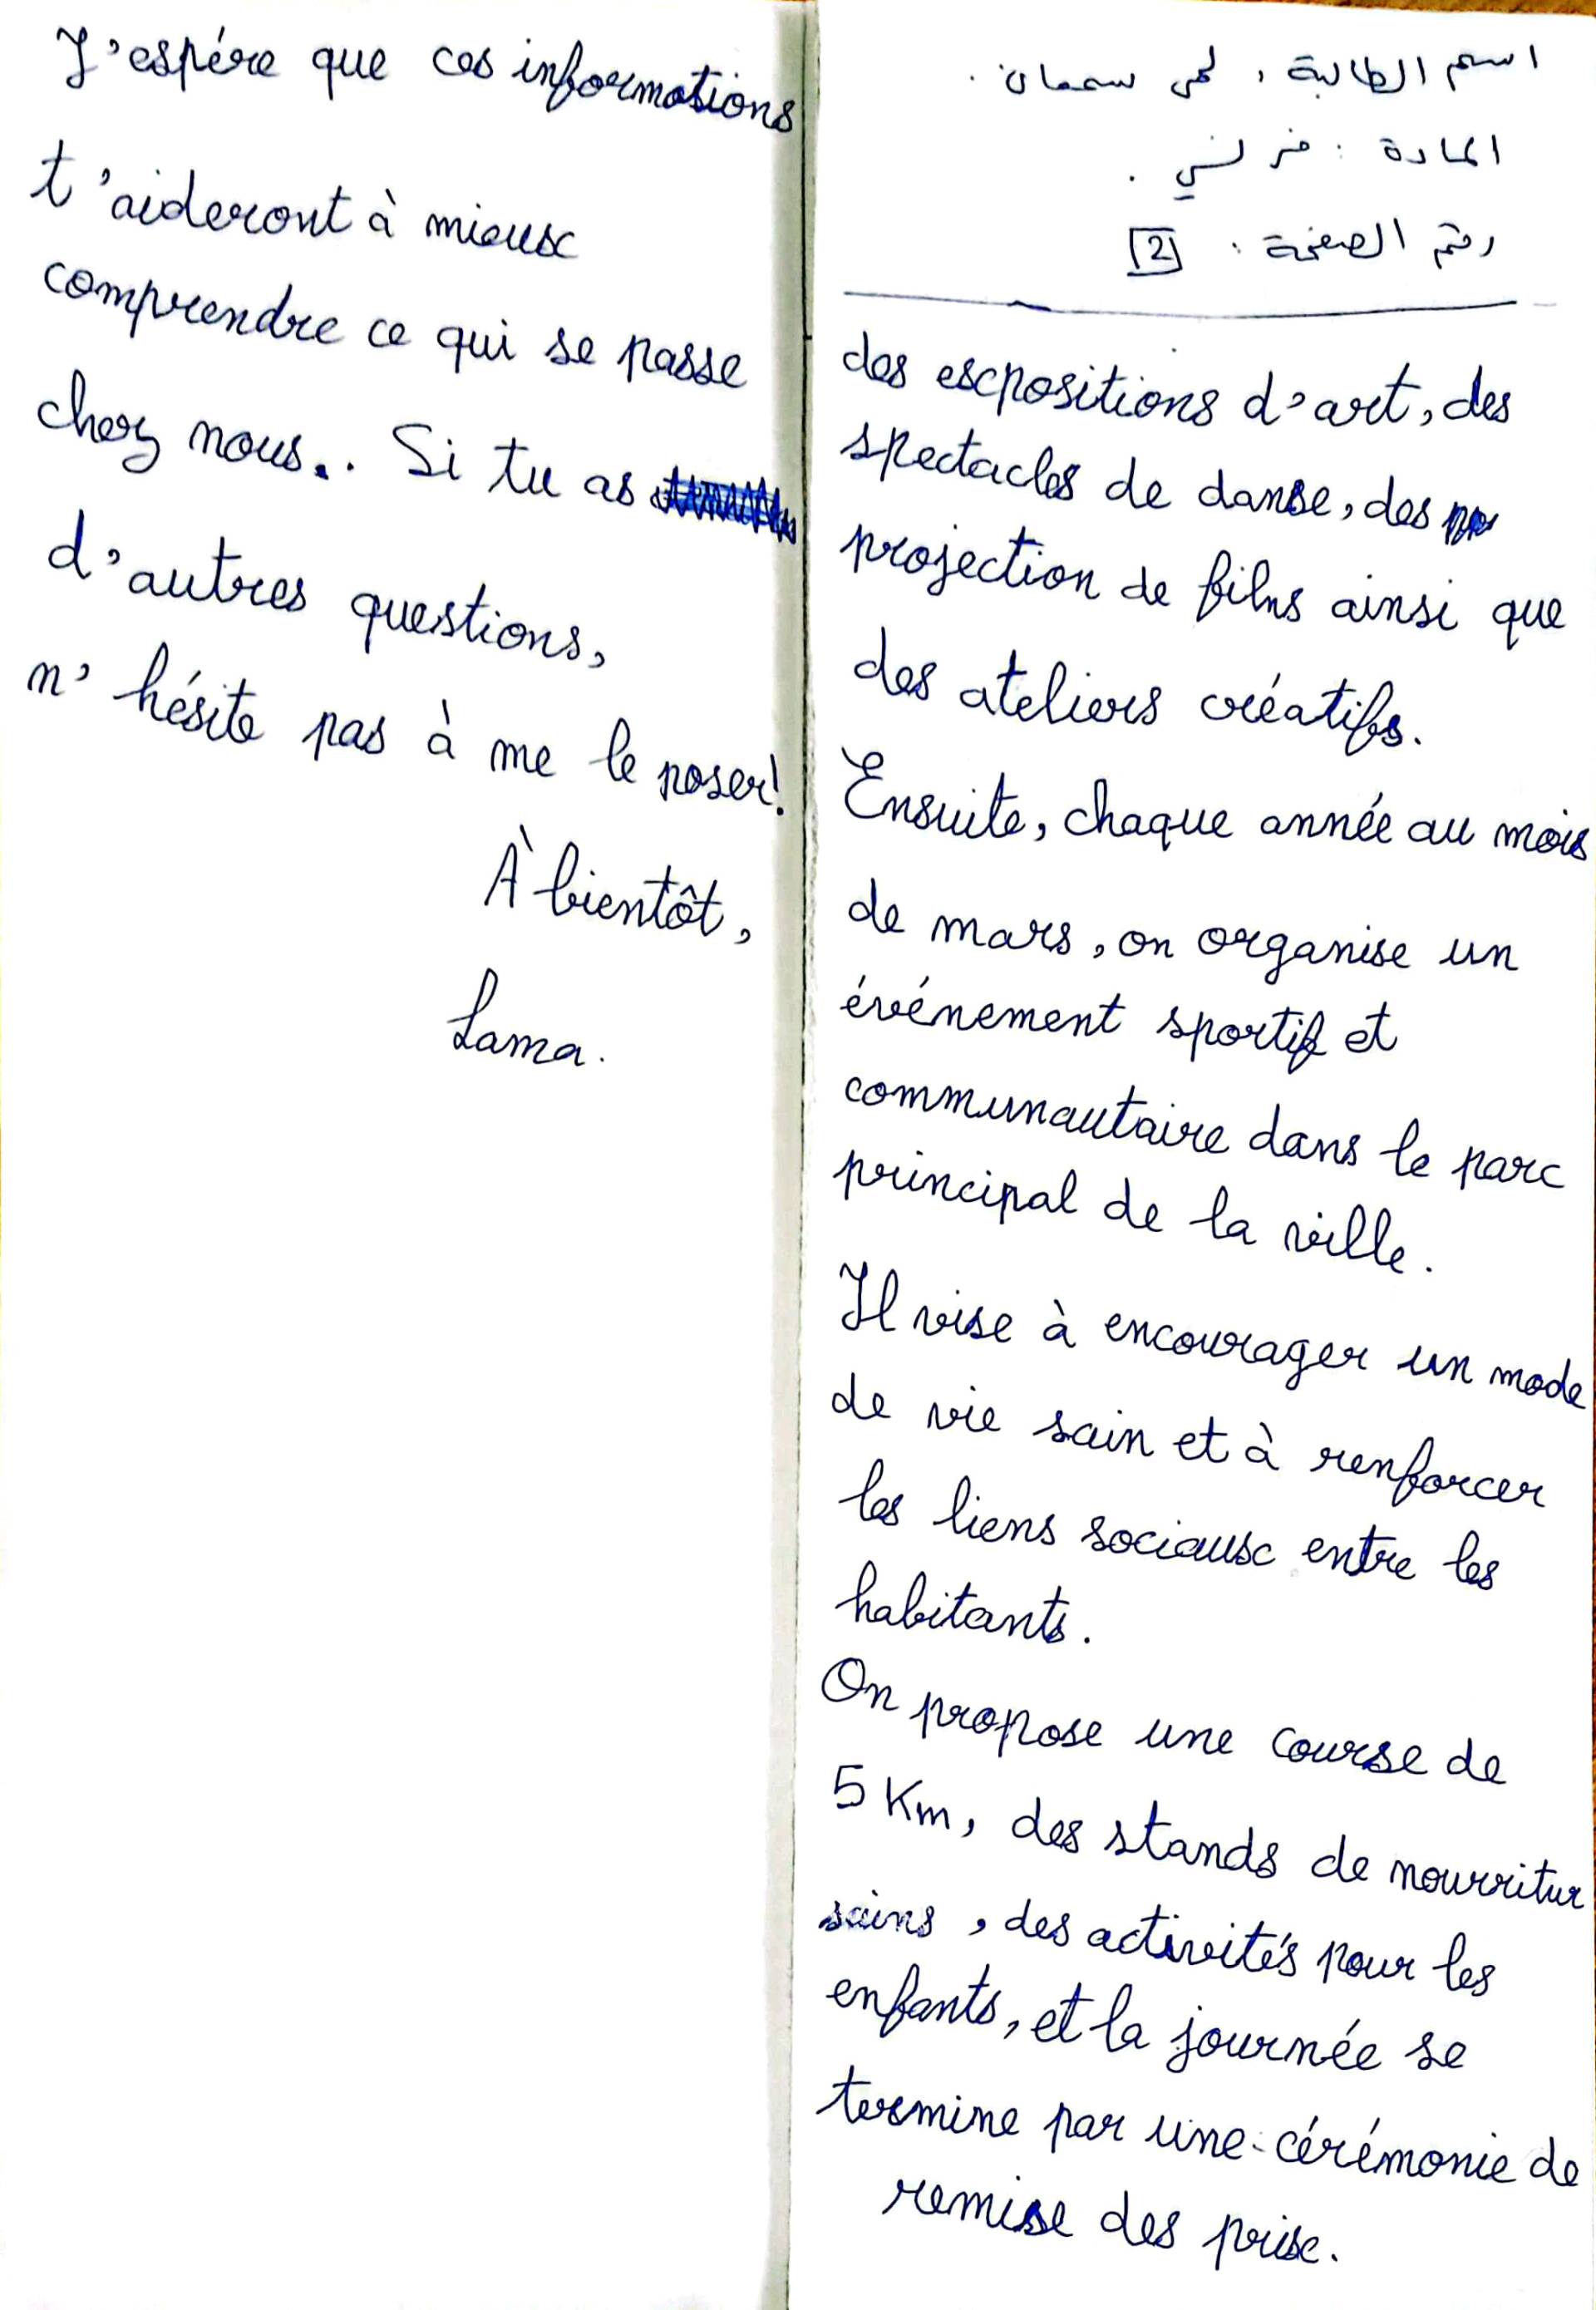 اسم الطالبة : لمى سمعان .
المادة : فرنسي .
رقم الصفحة : 2
des expositions d'art, des
spectacles de danse, des
projection de films ainsi que
des ateliers créatifs.
Ensuite, chaque année au mois
de mars, on organise un
événement sportif et
communautaire dans le parc
principal de la ville.
Il vise à encourager un mode
de vie sain et à renforcer
les liens sociaux entre les
habitants.
On propose une course de
5 Km, des stands de nourritur
sains, des activités pour les
enfants, et la journée se
termine par une cérémonie de
remise des prix.
J'espére que ces informations
t'aideront à mieux
comprendre ce qui se passe
chez nous.. Si tu as
d'autres questions,
n'hésite pas à me le poser!
À bientôt,
Lama.